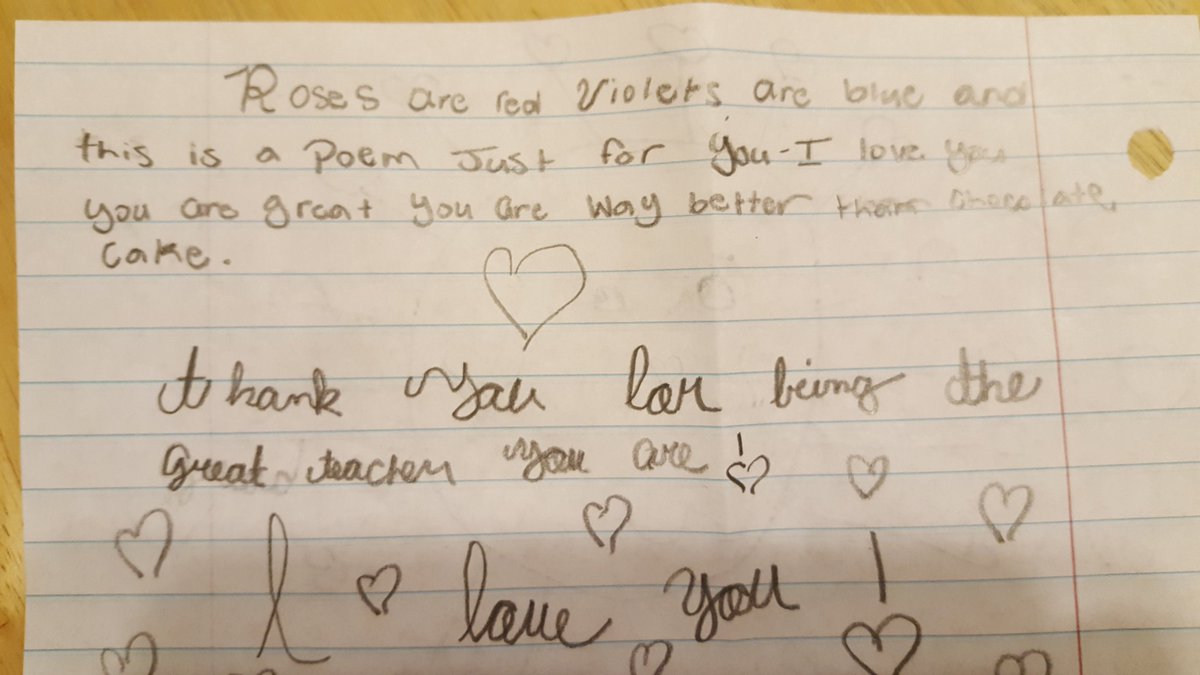 Roses are red Violets are blue and
this is a Poem Just for you - I love you
you are great you are way better than chocolate
cake.
thank you for being the
great teacher you are!
I love you!